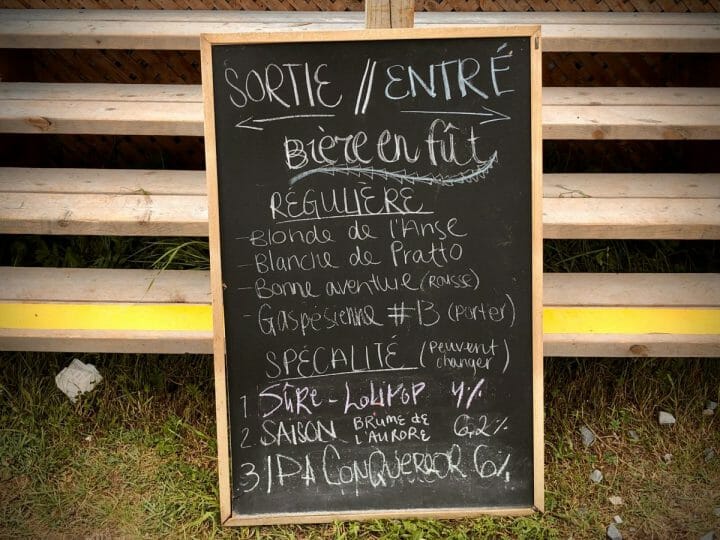 SORTIE // ENTRÉ
Bière en fût
RÉGULIÈRE
- Blonde de l'Anse
- Blanche de Pratto
- Bonne aventure (ROUSSE)
- Gaspésienne #13 (Porter)
SPÉCALITÉ (Peuvent changer)
1. SÛRE - LOLIPOP 4%
2. SAISON BRUME DE L'AURORE 6,2%
3 IPA CONQUERROR 6%